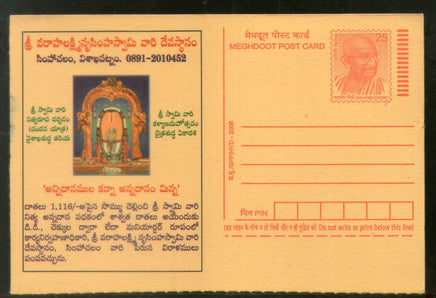 శ్రీ వరాహలక్ష్మీనృసింహస్వామి వారి దేవస్థానం
సింహాచలం, విశాఖపట్నం. 0891-2010452
శ్రీ స్వామి వారి
నిత్యరూప దర్శనం
(చందన యాత్ర)
వైశాఖశుద్ధ తదియ
శ్రీ స్వామి వారి
కళ్యాణమహోత్సవం
చైత్రశుద్ధ ఏకాదశి
'అన్నిదానముల కన్నా అన్నదానం మిన్న'
దాతలు 1,116/-ఆపైన సొమ్ము చెల్లించి శ్రీ స్వామి వారి
నిత్య అన్నదాన పథకంలో శాశ్వత దాతలు అయ్యేందుకు
డి.డి., చెక్కుల ద్వారా లేదా మనియార్డర్ రూపంలో
కార్యనిర్వహణాధికారి, శ్రీ వరాహలక్ష్మీ నృసింహస్వామి వారి
దేవస్థానం, సింహాచలం వారి పేరున విరాళములు
పంపవచ్చును.
मेघदूत पोस्ट कार्ड
MEGHDOOT POST CARD
25
महात्मा गांधी MAHATMA GANDHI
प्र.मु./SPP/HYD - 2008
पिन PIN
(इस लाइन के नीचे न तो लिखें और न ही मुद्रित करें Do not write or print below this line)